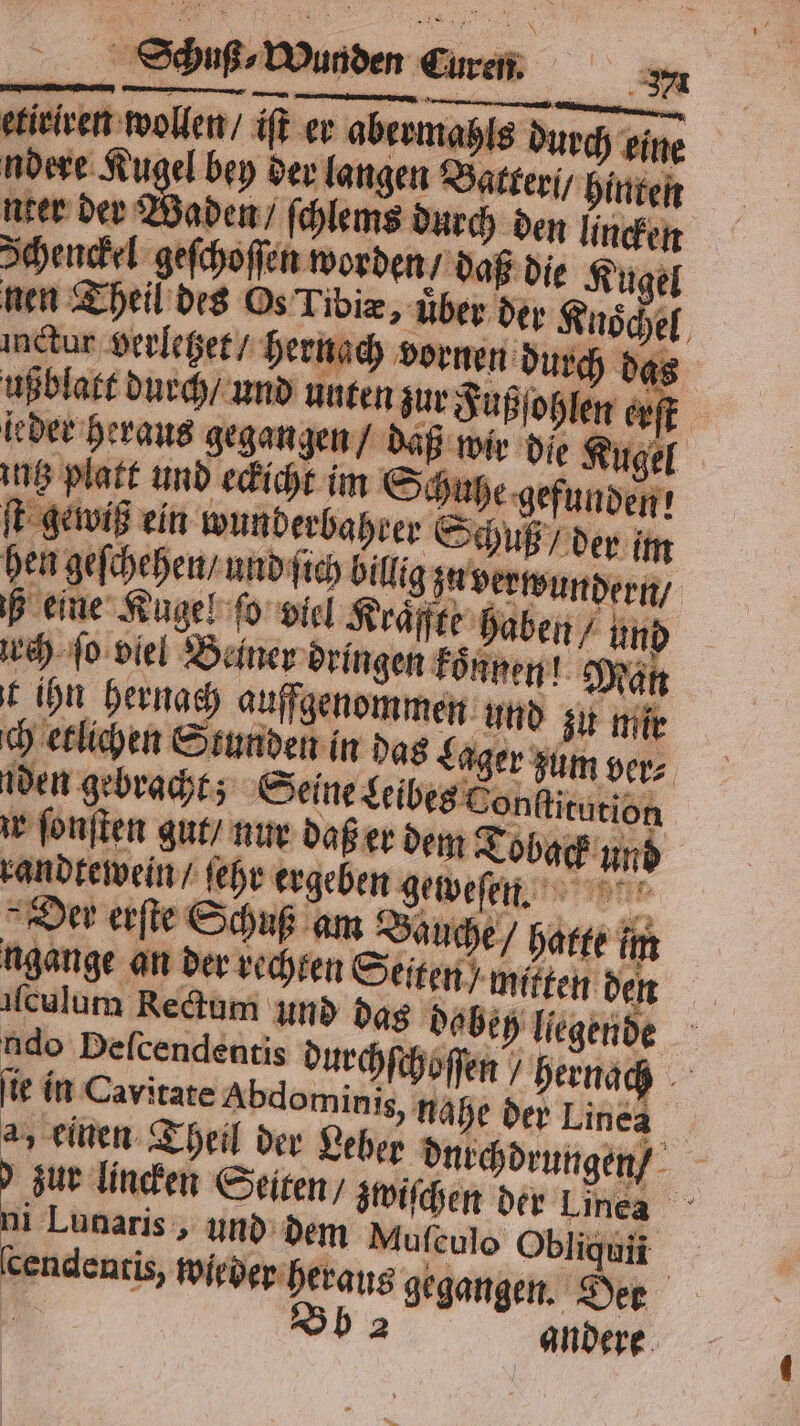 Schuß-Wunden Curen. 371
etiriren wollen/ iſt er abermahls durch eine
ndere Kugel bey der langen Batteri/ hinten
nter der Waden/ ſchlems durch den lincken
Schenckel geſchoſſen worden/ daß die Kugel
nen Theil des Os Tibiæ, uͤber der Knoͤchel
inctur verletzet/ hernach vornen durch das
ußblatt durch/ und unten zur Fußſohlen erſt
ieder heraus gegangen/ daß wir die Kugel
antz platt und eckicht im Schuhe gefunden!
ſt gewiß ein wunderbahrer Schuß/ der im
hen geſchehen/ und ſich billig zu verwundern/
ß eine Kugel ſo viel Kraͤffte haben/ und
urch ſo viel Beiner dringen koͤnnen! Man
t ihn hernach auffgenommen und zu mir
ch etlichen Stunden in das Lager zum ver-
nden gebracht; Seine Leibes Conſtitution
ar ſonſten gut/ nur daß er dem Toback und
randtewein/ ſehr ergeben geweſen.
Der erſte Schuß am Bauche/ hatte im
ngange an der rechten Seiten/ mitten den
uſculum Rectum und das dabey liegende
ndo Deſcendentis durchſchoſſen/ hernach
ſie in Cavitate Abdominis, nahe der Linea
a, einen Theil der Leber durchdrungen/
d zur lincken Seiten/ zwiſchen der Linea
ni Lunaris, und dem Muſculo Obliquii
ſcendentis, wieder heraus gegangen. Der
Bb 2 andere